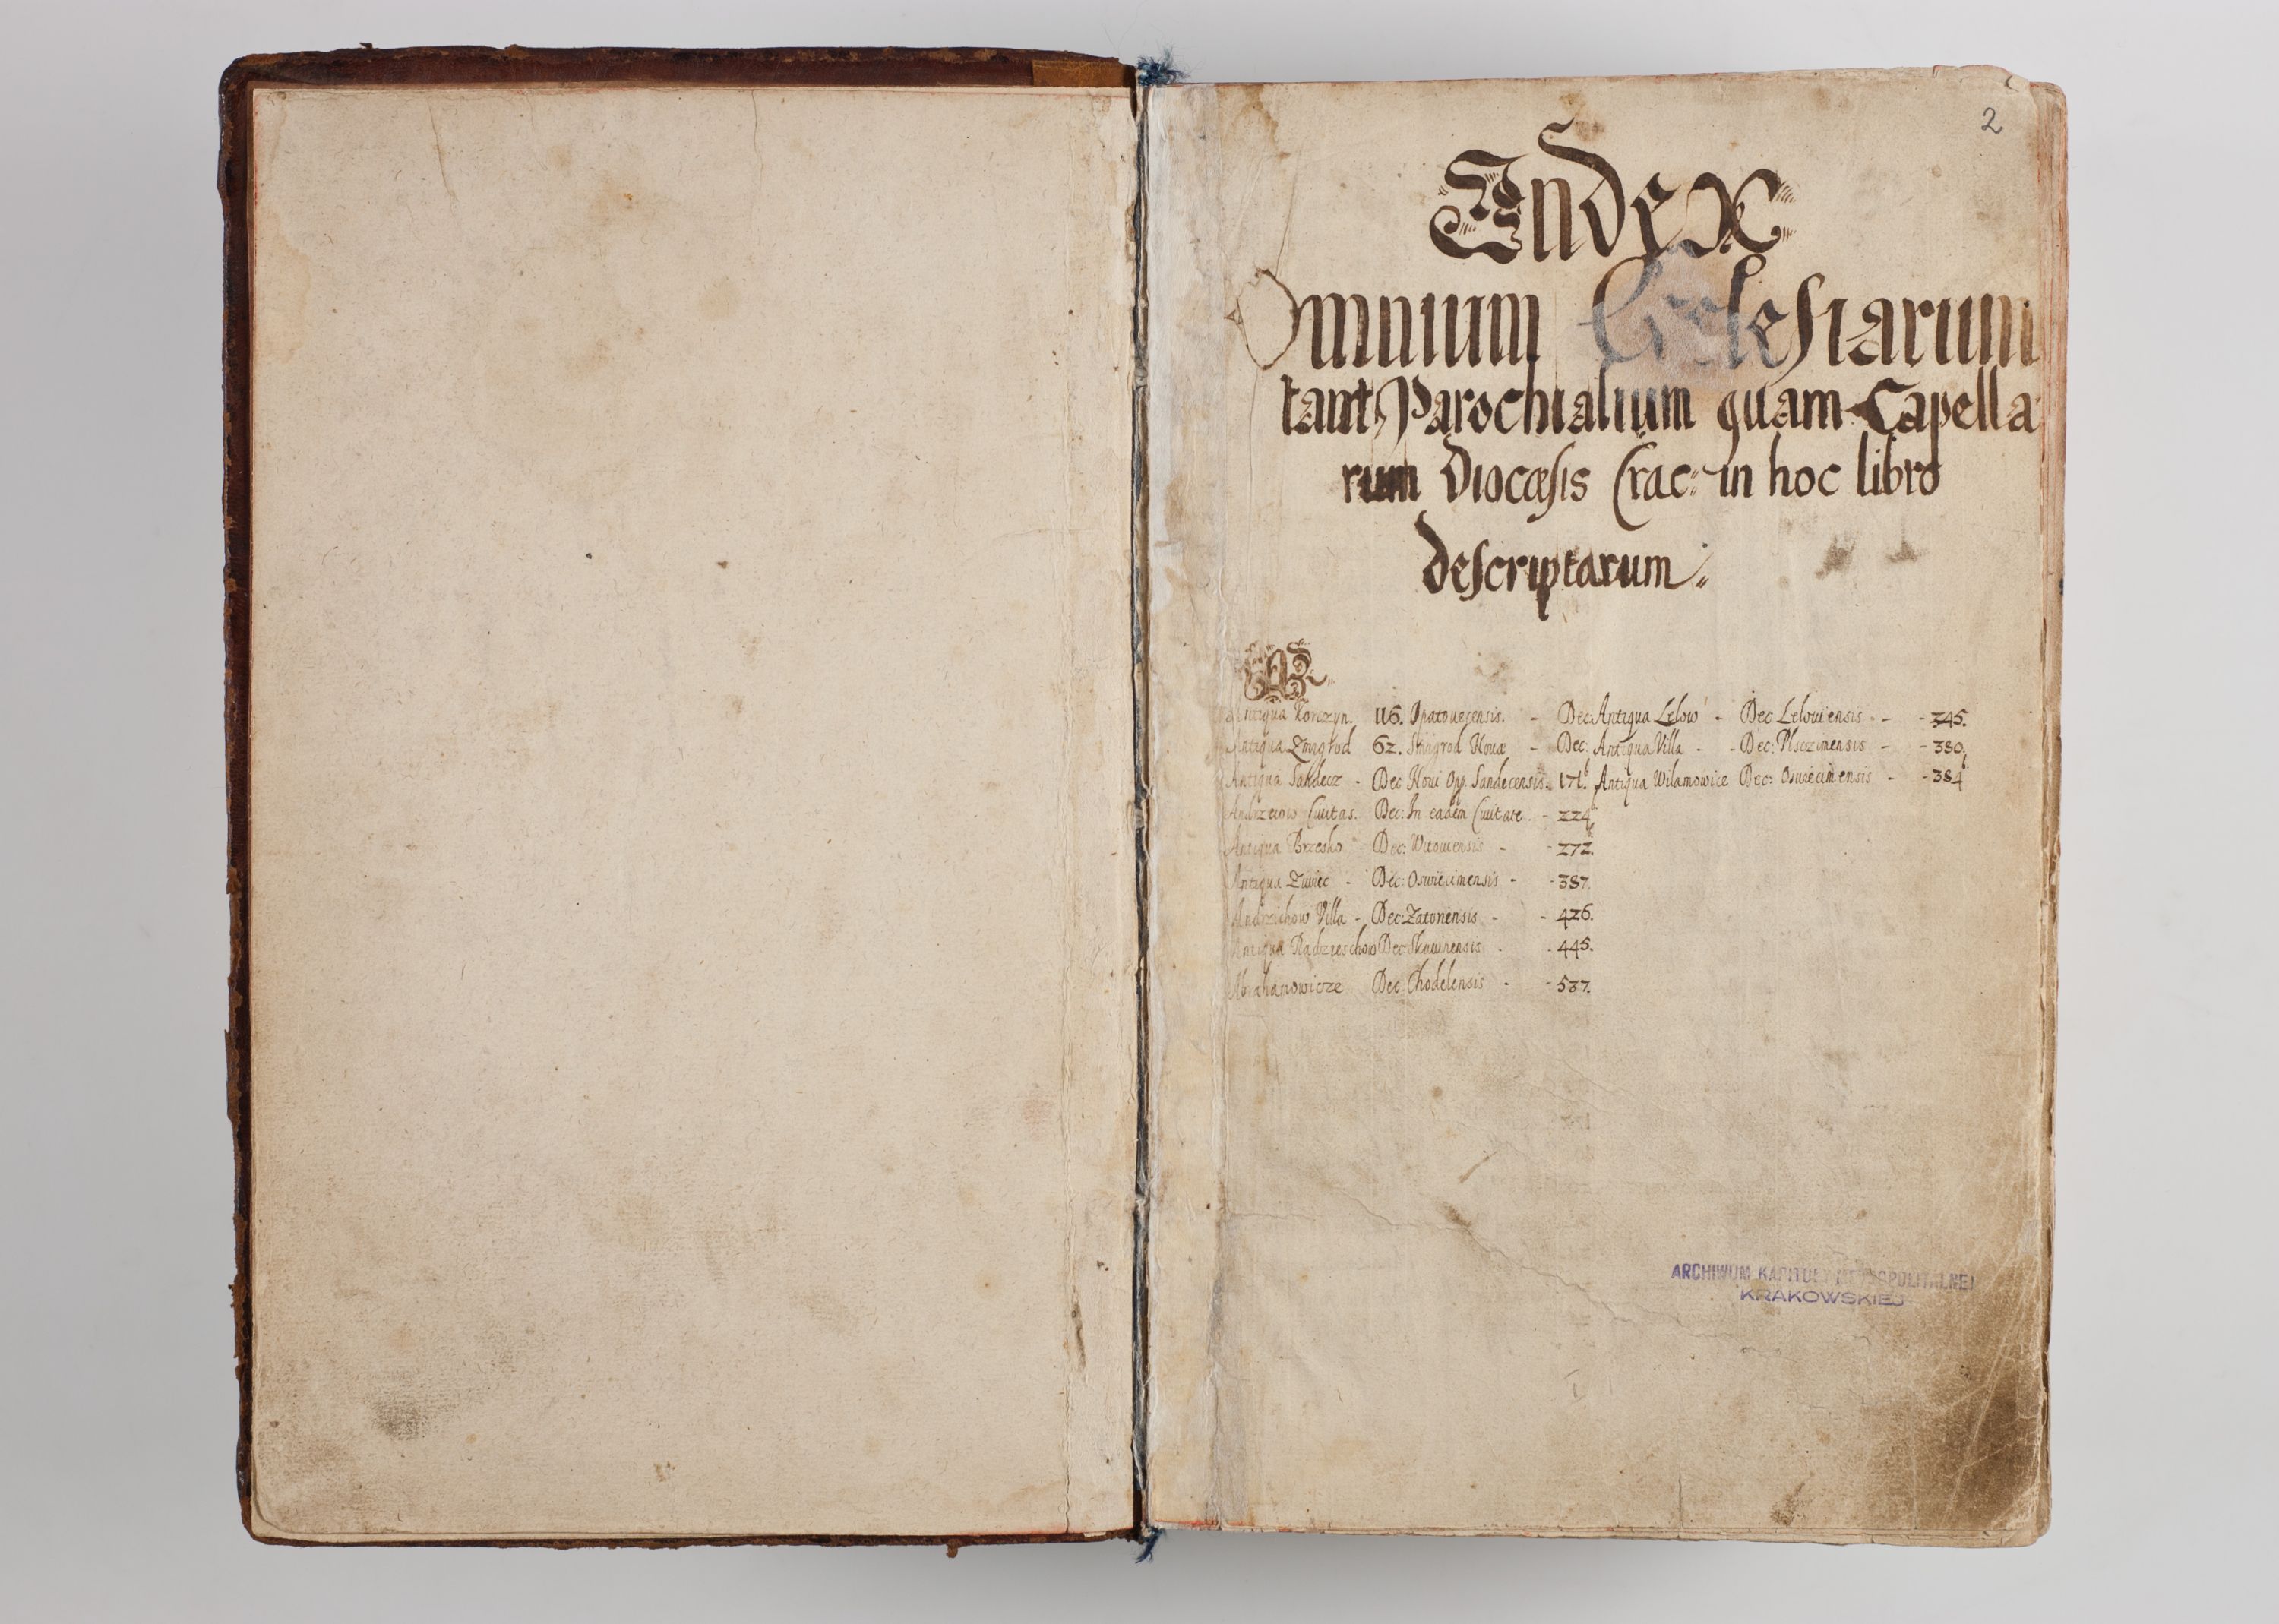 2
Index
Omnium Ecclesiarum
tam Parochialium quam Capella
rum Diocæsis Crac: in hoc libro
descriptarum
A
Antiqua Korczyn. 116. Opatouecensis. - Dec: Antiqua Lelow - Dec Lelouiensis - - 345.
Antiqua Zmigrod 62. Smigrod Noua - Dec: Antiqua Villa - - Dec: - - 380.
Antiqua Sandecz - Dec Noui Opp. Sandecensis. 171. Antiqua Wilamowice Dec: Osuiecimensis - - 384
Andrzeiow Ciuitas. Dec: In eadem Ciuitate - 224
Antiqua Brzesko Dec: Witouiensis - - 272.
Antiqua Zuwiec - Dec: Osuiecimensis - - 387.
Andrzichow Villa - Dec: Zatoriensis - - 426.
Antiqua Radzieschow Dec: Skauinensis - - 445.
Abrahamowicze Dec Chodelensis - - 537.
ARCHIWUM KAPITUŁY METROPOLITALNEJ
KRAKOWSKIEJ